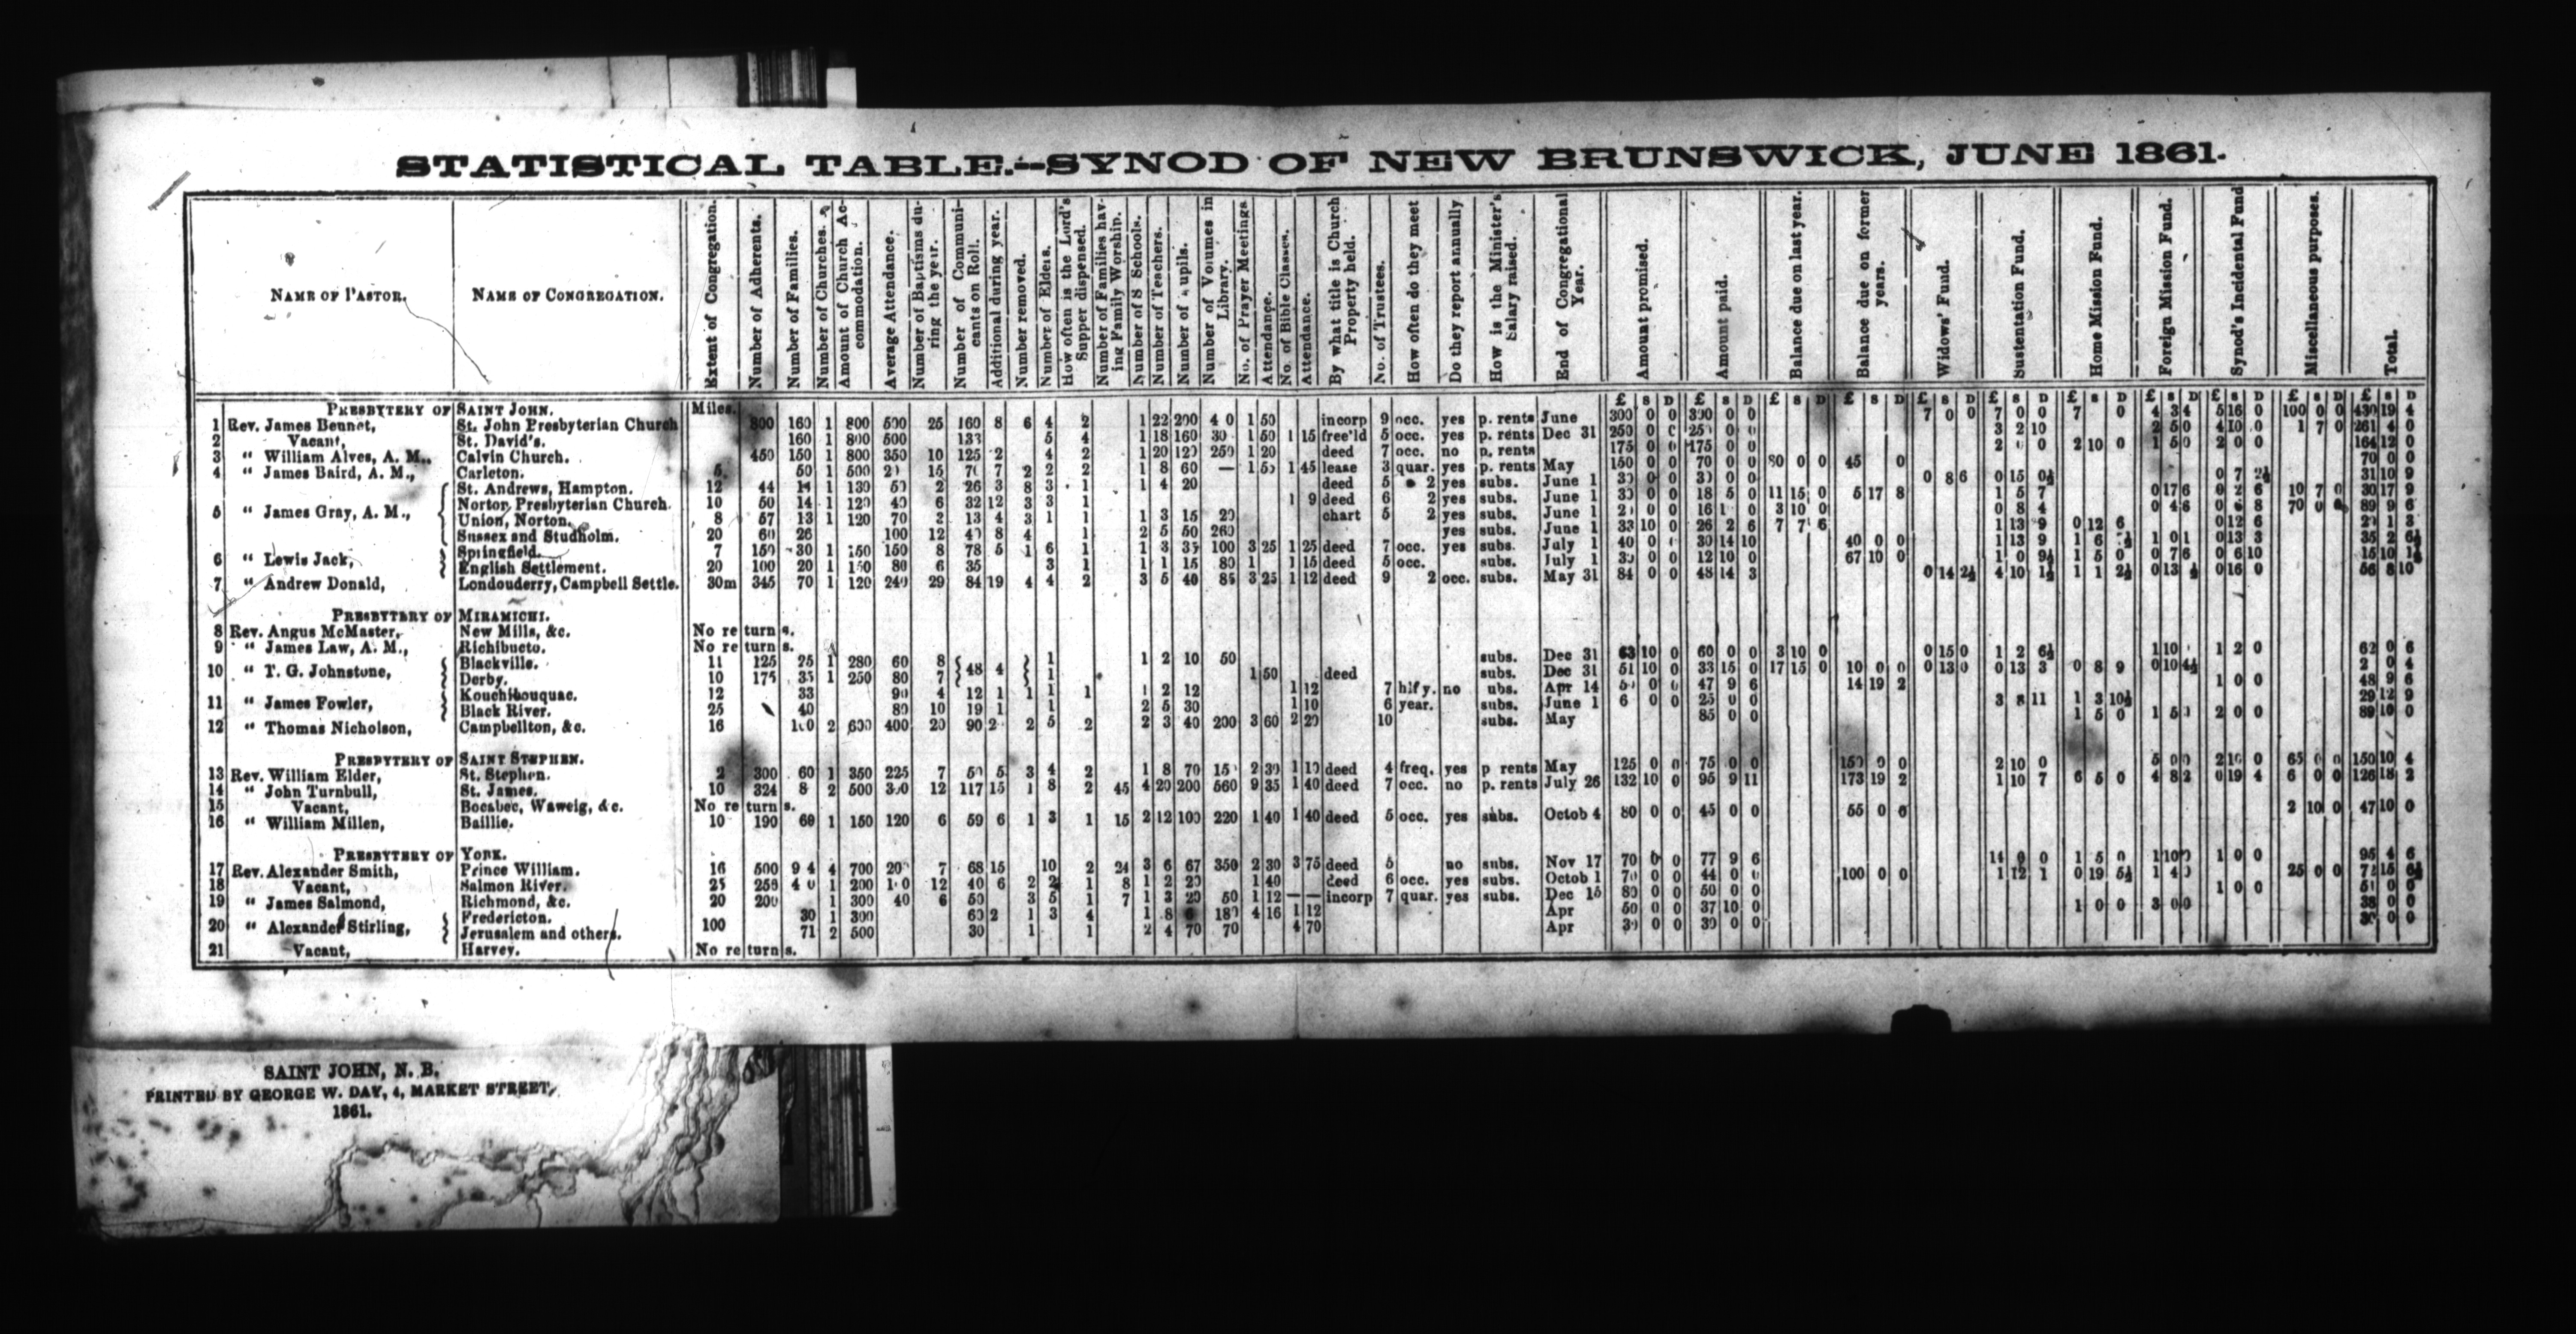 STATISTICAL TABLE.--SYNOD OF NEW BRUNSWICK, JUNE 1861.
NAME OF PASTOR.
NAME OF CONGREGATION.
Extent of Congregation.
Number of Adherents.
Number of Families.
Number of Churches.
Amount of Church Accommodation.
Average Attendance.
Number of Baptisms during the year.
Number of Communicants on Roll.
Additional during year.
Number removed.
Number of Elders.
How often is the Lord's Supper dispensed.
Number of Families having Family Worship.
Number of S Schools.
Number of Teachers.
Number of Pupils.
Number of Volumes in Library.
No. of Prayer Meetings
Attendance.
No. of Bible Classes.
Attendance.
By what title is Church Property held.
No. of Trustees.
How often do they meet
Do they report annually
How is the Minister's Salary raised.
End of Congregational Year.
Amount promised.
Amount paid.
Balance due on last year.
Balance due on former years.
Widows' Fund.
Sustentation Fund.
Home Mission Fund.
Foreign Mission Fund.
Synod's Incidental Fund
Miscellaneous purposes.
Total.
PRESBYTERY OF SAINT JOHN. Miles. £ s D £ s D £ s D £ s D £ s D £ s D £ s D £ s D £ s D £ s D £ s D
1 Rev. James Bennet, St. John Presbyterian Church 800 160 1 800 500 25 160 8 6 4 2 1 22 200 1 50 incorp 9 occ. yes p. rents June 300 0 0 300 0 0 7 0 0 7 0 0 7 0 4 3 4 5 16 0 100 0 0 430 19 4
2 Vacant, St. David's. 160 1 800 500 5 4 1 18 160 30 1 50 1 15 free'ld 5 occ. yes p. rents Dec 31 250 0 0 0 3 2 10 2 5 0 4 10 0 1 7 0 261 4 0
3 " William Alves, A. M., Calvin Church. 450 150 1 800 350 10 125 2 4 2 1 20 120 250 1 20 deed 7 occ. no p. rents 175 0 0 175 0 0 2 0 2 10 0 1 5 0 2 0 0 164 12 0
4 " James Baird, A. M., Carleton. 50 1 500 15 2 2 2 1 8 60 — 1 50 1 45 lease 3 quar. yes p. rents May 150 0 0 70 0 0 80 0 0 45 0 70 0 0
St. Andrews, Hampton. 12 44 14 1 130 50 2 26 3 8 3 1 1 4 20 deed 5 2 yes subs. June 1 30 0 0 30 0 0 0 8 6 0 15 0½ 0 7 2½ 31 10 9
5 " James Gray, A. M., Norton Presbyterian Church. 10 50 14 1 120 40 6 32 12 3 3 1 1 9 deed 6 2 yes subs. June 1 30 0 0 18 5 0 11 15 0 5 17 8 1 5 7 0 17 6 0 2 6 10 7 0 30 17 9
Union, Norton. 8 57 13 1 120 70 2 13 4 3 1 1 1 3 15 20 chart 5 2 yes subs. June 1 0 0 16 0 3 10 0 0 8 4 0 4 6 0 6 8 70 0 89 9 6
Sussex and Studholm. 20 60 26 100 12 40 8 4 1 2 5 50 260 yes subs. June 1 33 10 0 26 2 6 7 7 6 1 13 9 0 12 6 0 12 6 1 3
6 " Lewis Jack, Springfield. 7 150 30 1 150 150 8 78 5 1 6 1 1 3 35 100 3 25 1 25 deed 7 occ. yes subs. July 1 40 0 0 30 14 10 40 0 0 1 13 9 1 6 1 0 1 0 13 3 35 2 6½
English Settlement. 20 100 20 1 150 80 6 35 3 1 1 1 15 80 1 1 15 deed 5 occ. subs. July 1 30 0 0 12 10 0 67 10 0 1 0 9½ 1 5 0 0 7 6 0 6 10 15 10
7 " Andrew Donald, Londouderry, Campbell Settle. 30m 345 70 1 120 240 29 84 19 4 4 2 3 5 40 85 3 25 1 12 deed 9 2 occ. subs. May 31 84 0 0 48 14 3 0 14 2½ 4 10 1½ 1 1 2½ 0 13 ½ 0 16 0 56 8 10
PRESBYTERY OF MIRAMICHI.
8 Rev. Angus McMaster, New Mills, &c. No returns.
9 " James Law, A. M., Richibucto. No returns.
10 " T. G. Johnstone, Blackville. 11 125 25 1 280 60 8 48 4 1 1 2 10 50 subs. Dec 31 63 10 0 60 0 0 3 10 0 0 15 0 1 2 6½ 1 10 1 2 0 62 0 6
Derby. 10 175 35 1 250 80 7 1 1 50 deed subs. Dec 31 51 10 0 33 15 0 17 15 0 10 0 0 0 13 0 0 13 3 0 8 9 0 10 4½ 2 0 4
11 " James Fowler, Kouchibouquac. 12 33 90 4 12 1 1 1 1 1 2 12 1 12 7 hlf y. no ubs. Apr 14 0 0 47 9 6 14 19 2 1 0 0 48 9 6
Black River. 25 40 80 10 19 1 1 2 5 30 1 10 6 year. subs. June 1 6 0 0 25 0 0 3 8 11 1 3 10½ 29 12 9
12 " Thomas Nicholson, Campbellton, &c. 16 100 2 600 400 20 90 2 2 5 2 2 3 40 200 3 60 2 20 10 subs. May 85 0 0 1 5 0 1 5 2 0 0 89 10 0
PRESBYTERY OF SAINT STEPHEN.
13 Rev. William Elder, St. Stephen. 2 300 60 1 350 225 7 50 5 3 4 2 1 8 70 15 2 30 1 10 deed 4 freq. yes p rents May 125 0 0 75 0 0 150 0 0 2 10 0 5 0 0 2 10 0 65 0 0 150 10 4
14 " John Turnbull, St. James. 10 324 8 2 500 300 12 117 15 1 8 2 45 4 20 200 560 9 35 1 40 deed 7 occ. no p. rents July 26 132 10 0 95 9 11 173 19 2 1 10 7 6 5 0 4 8 2 0 19 4 6 0 0 126 18 2
15 Vacant, Bocabec, Waweig, &c. No returns.
16 " William Millen, Baillie. 10 190 60 1 150 120 6 59 6 1 3 1 15 2 12 100 220 1 40 1 40 deed 5 occ. yes subs. Octob 4 80 0 0 45 0 0 55 0 6 2 10 0 47 10 0
PRESBYTERY OF YORK.
17 Rev. Alexander Smith, Prince William. 16 500 9 4 4 700 20 7 68 15 10 2 24 3 6 67 350 2 30 3 75 deed 5 no subs. Nov 17 70 0 0 77 9 6 14 0 0 1 5 0 1 10 0 1 0 0 95 4 6
18 Vacant, Salmon River. 25 256 4 0 1 200 1 0 12 40 6 2 2 1 8 1 2 20 1 40 deed 6 occ. yes subs. Octob 1 70 0 0 44 0 0 100 0 0 1 12 1 0 19 5½ 1 4 0 25 0 0 72 15 6½
19 " James Salmond, Richmond, &c. 20 200 1 300 40 6 50 3 5 1 7 1 3 20 50 1 12 — — incorp 7 quar. yes subs. Dec 15 80 0 0 50 0 0 1 0 0 51 0 0
20 " Alexander Stirling, Fredericton. 100 30 1 300 60 2 1 3 4 1 8 180 4 16 1 12 Apr 50 0 0 37 10 0 1 0 0 3 0 0 38 0 0
Jerusalem and others. 71 2 500 30 1 1 2 4 70 70 4 70 Apr 30 0 0 30 0 0 30 0 0
21 Vacant, Harvey. No returns.
SAINT JOHN, N. B.
PRINTED BY GEORGE W. DAY, 4, MARKET STREET,
1861.